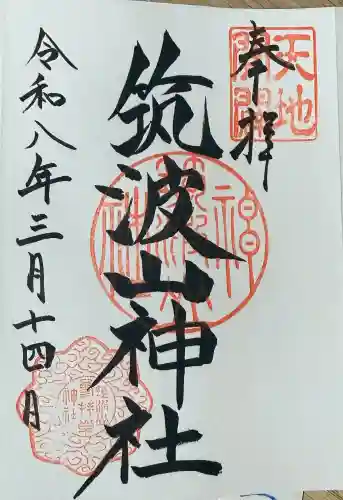 奉拝
天地
開闢
筑波山神社
令和八年三月十四月